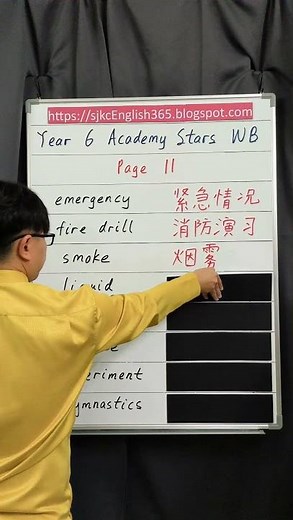 https://sjkcEnglish365.blogspot.com
Year 6 Academy Stars WB
Page 11
emergency 紧急情况
fire drill 消防演习
smoke 烟雾
liquid